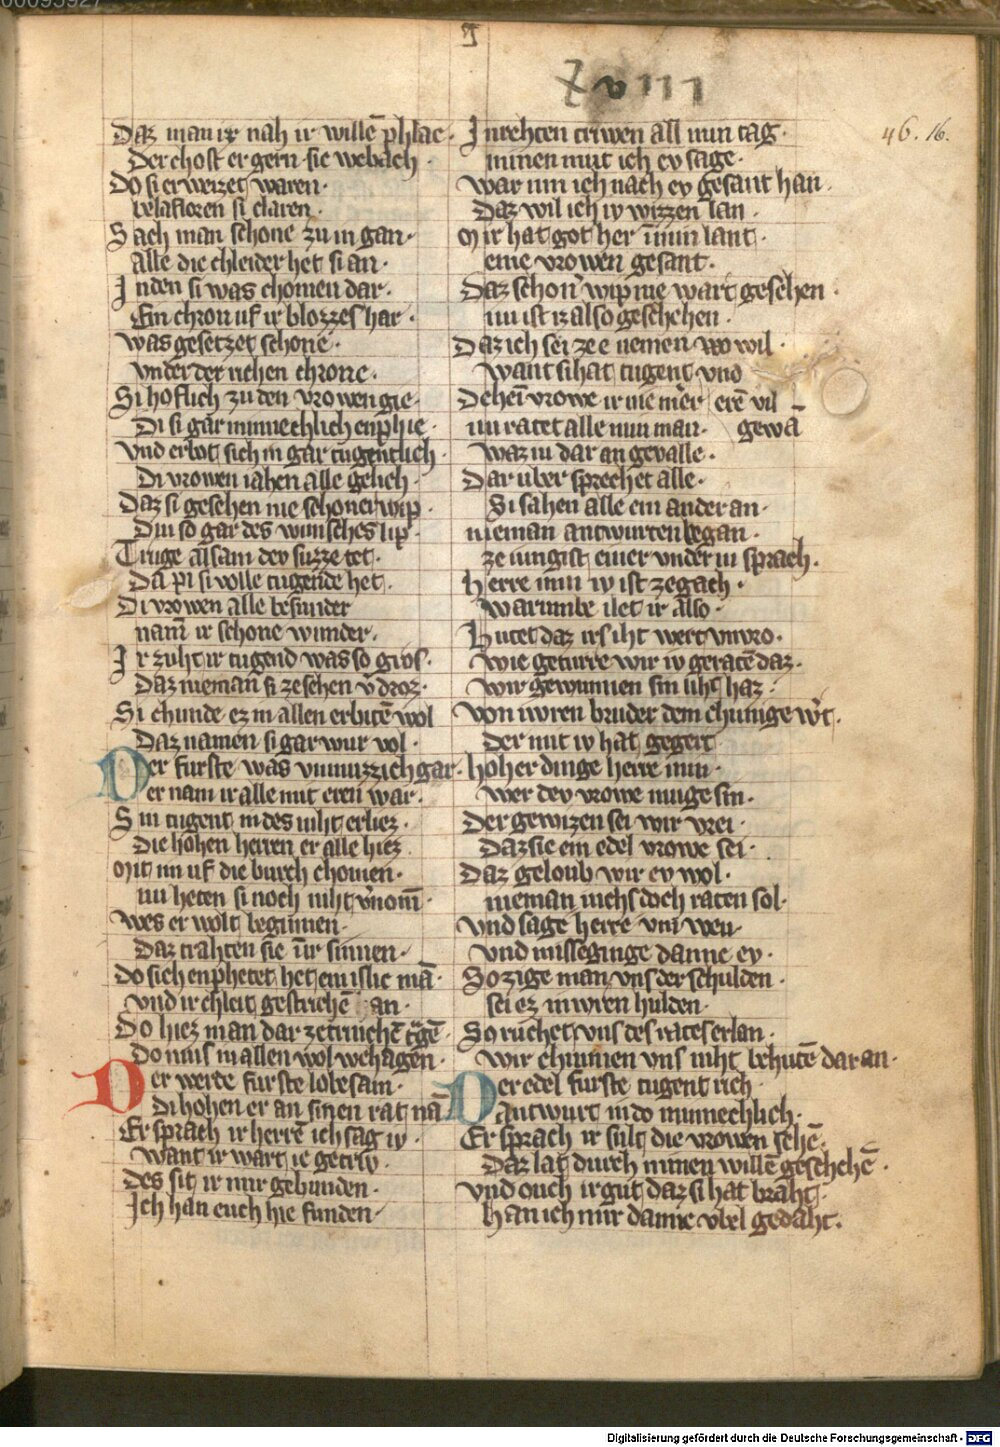 xviii
46. 16.
Daz man ir nah ir willē phlac·
Der chost er gern sie webach·
Do si erweizet waren·
belafloren si claren·
Sach man schone zu in gan·
alle die chleider het si an·
Inden si was chomen dar·
Ein chron uf ir blozzes har·
was gesetzet schone·
vnder der richen chrone·
Si hoflich zu den vrowen gie·
Di si gar minnechlich enphie·
Vnd erbot sich in gar tugentlich·
Di vrowen iahen alle gelich·
Daz si gesehen nie schoner wip·
Diu so gar des wunsches lip·
Truge alsam dev suzze tet·
Da pi si volle tugende het·
Di vrowen alle besunder
nam̄ ir schone wunder·
Ir zuht ir tugend was so gros·
Daz nieman si ze sehen v̄droz·
Si chunde ez in allen erbitē wol
Daz namen si gar wur vol·
Der furste was vnmuzzich gar·
er nam ir alle mit eren war·
Sin tugent in des niht erliez·
Die hohen herren er alle hiez
Mit im uf die burch chomen·
nu heten si noch niht v̄nom̄·
wes er wolt beginnen·
Daz trahten sie in̄r sinnen·
Do sich enphetet het em islic mā·
vnd ir chleit gestrichē an·
Do hiez man dar ze trinchē tᵃgē·
Do muis in allen wol wehagen·
Der werde furste lobesam·
Di hohen er an sinen rat nā
Er sprach ir herrē ich sag iv·
want ir wart ie getriv·
Des sit ir mir gebunden·
Ich han euch hie funden·
In rehten triwen all min tag·
minen mut ich ev sage·
war um ich nach ev gesant han·
Daz wil ich iv wizzen lan·
Mir hat got her in̄ min lant·
eine vrowen gesant·
Daz schon̄ wip nie wart gesehen·
nu ist iz also geschehen·
Daz ich sei ze e nemen wo wil·
want si hat tugent vnd
Dehei vrowe ir nie mer erē vil
nu ratet alle min man· gewā
waz iu dar an gevalle·
Dar uber sprechet alle·
Si sahen alle ein ander an·
nieman antwurten began·
ze iungist einer vnder in sprach·
herre min iv ist ze gach·
warumbe ilet ir also·
Hutet daz irs iht wert vnvro·
wie geturre wir iv geratē daz·
wir gewunnen sin lihs haz·
Von iwren bruder dem chunige w̄t·
Der mit iv hat gegert
hoher dinge herre min·
wer dev vrowe muge sin·
Der gewizen sei wir vrei·
Daz sie ein edel vrowe sei·
Daz geloub wir ev wol·
nieman nichs doch raten sol·
vnd sage herre vm wen·
vnd misseginge danne ev·
So zige man vns der schulden·
sei ez in wren hulden·
So ruchet vns des rates erlan·
wir chunnen vns niht behutē dar an·
Der edel furste tugent rich·
antwurt in do minnechlich·
Er sprach ir sult die vrowen sehē·
Daz lat durch minen willē geschehē·
vnd ouch ir gut daz si hat braht·
han ich mir danne vbel gedaht·
Digitalisierung gefördert durch die Deutsche Forschungsgemeinschaft - DFG